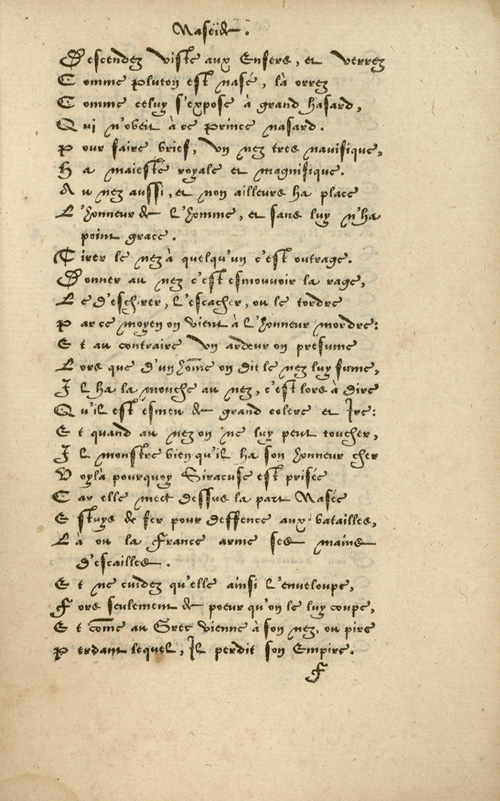 Naseïde.
Descendez viste aux Enfers, et verrez
Comme Pluton est nasé, là orrez
Comme celuy s'expose à grand hasard,
Qui n'obeit à ce Prince nasard.
Pour faire brief, Un nez tres navifique,
Ha maiesté royale et magnifique.
Au nez aussi, et non ailleurs ha place
L'honneur de l'homme, et sans luy n'ha
point grace.
Tirer le nez à quelqu'un c'est outrage.
Donner au nez c'est esmouvoir la rage,
Le deschirer, l'escacher, ou le tordre
Par ce moyen on vient à l'honneur mordre:
Et au contraire Un ardeur on presume
Lors que d'un hõme on dit le nez luy fume,
Il ha la mouche au nez, c'est lors à dire
Qu'il est esmeu de grand colere et Ire:
Et quand au nez on ne luy peut toucher,
Il monstre bien qu'il ha son honneur cher
Voyla pourquoy Siracuse est prisée
Car elle meet dessus la part Nasée
Estuys de fer pour deffence aux batailles,
Là ou la France arme ses mains
d'escailles.
Et ne cuidez qu'elle ainsi l'enveloupe,
Fors seulement de poeur qu'on le luy coupe,
Et cõme au Grec vienne à son nez, ou pire
Perdant lequel, Il perdit son Empire.
F